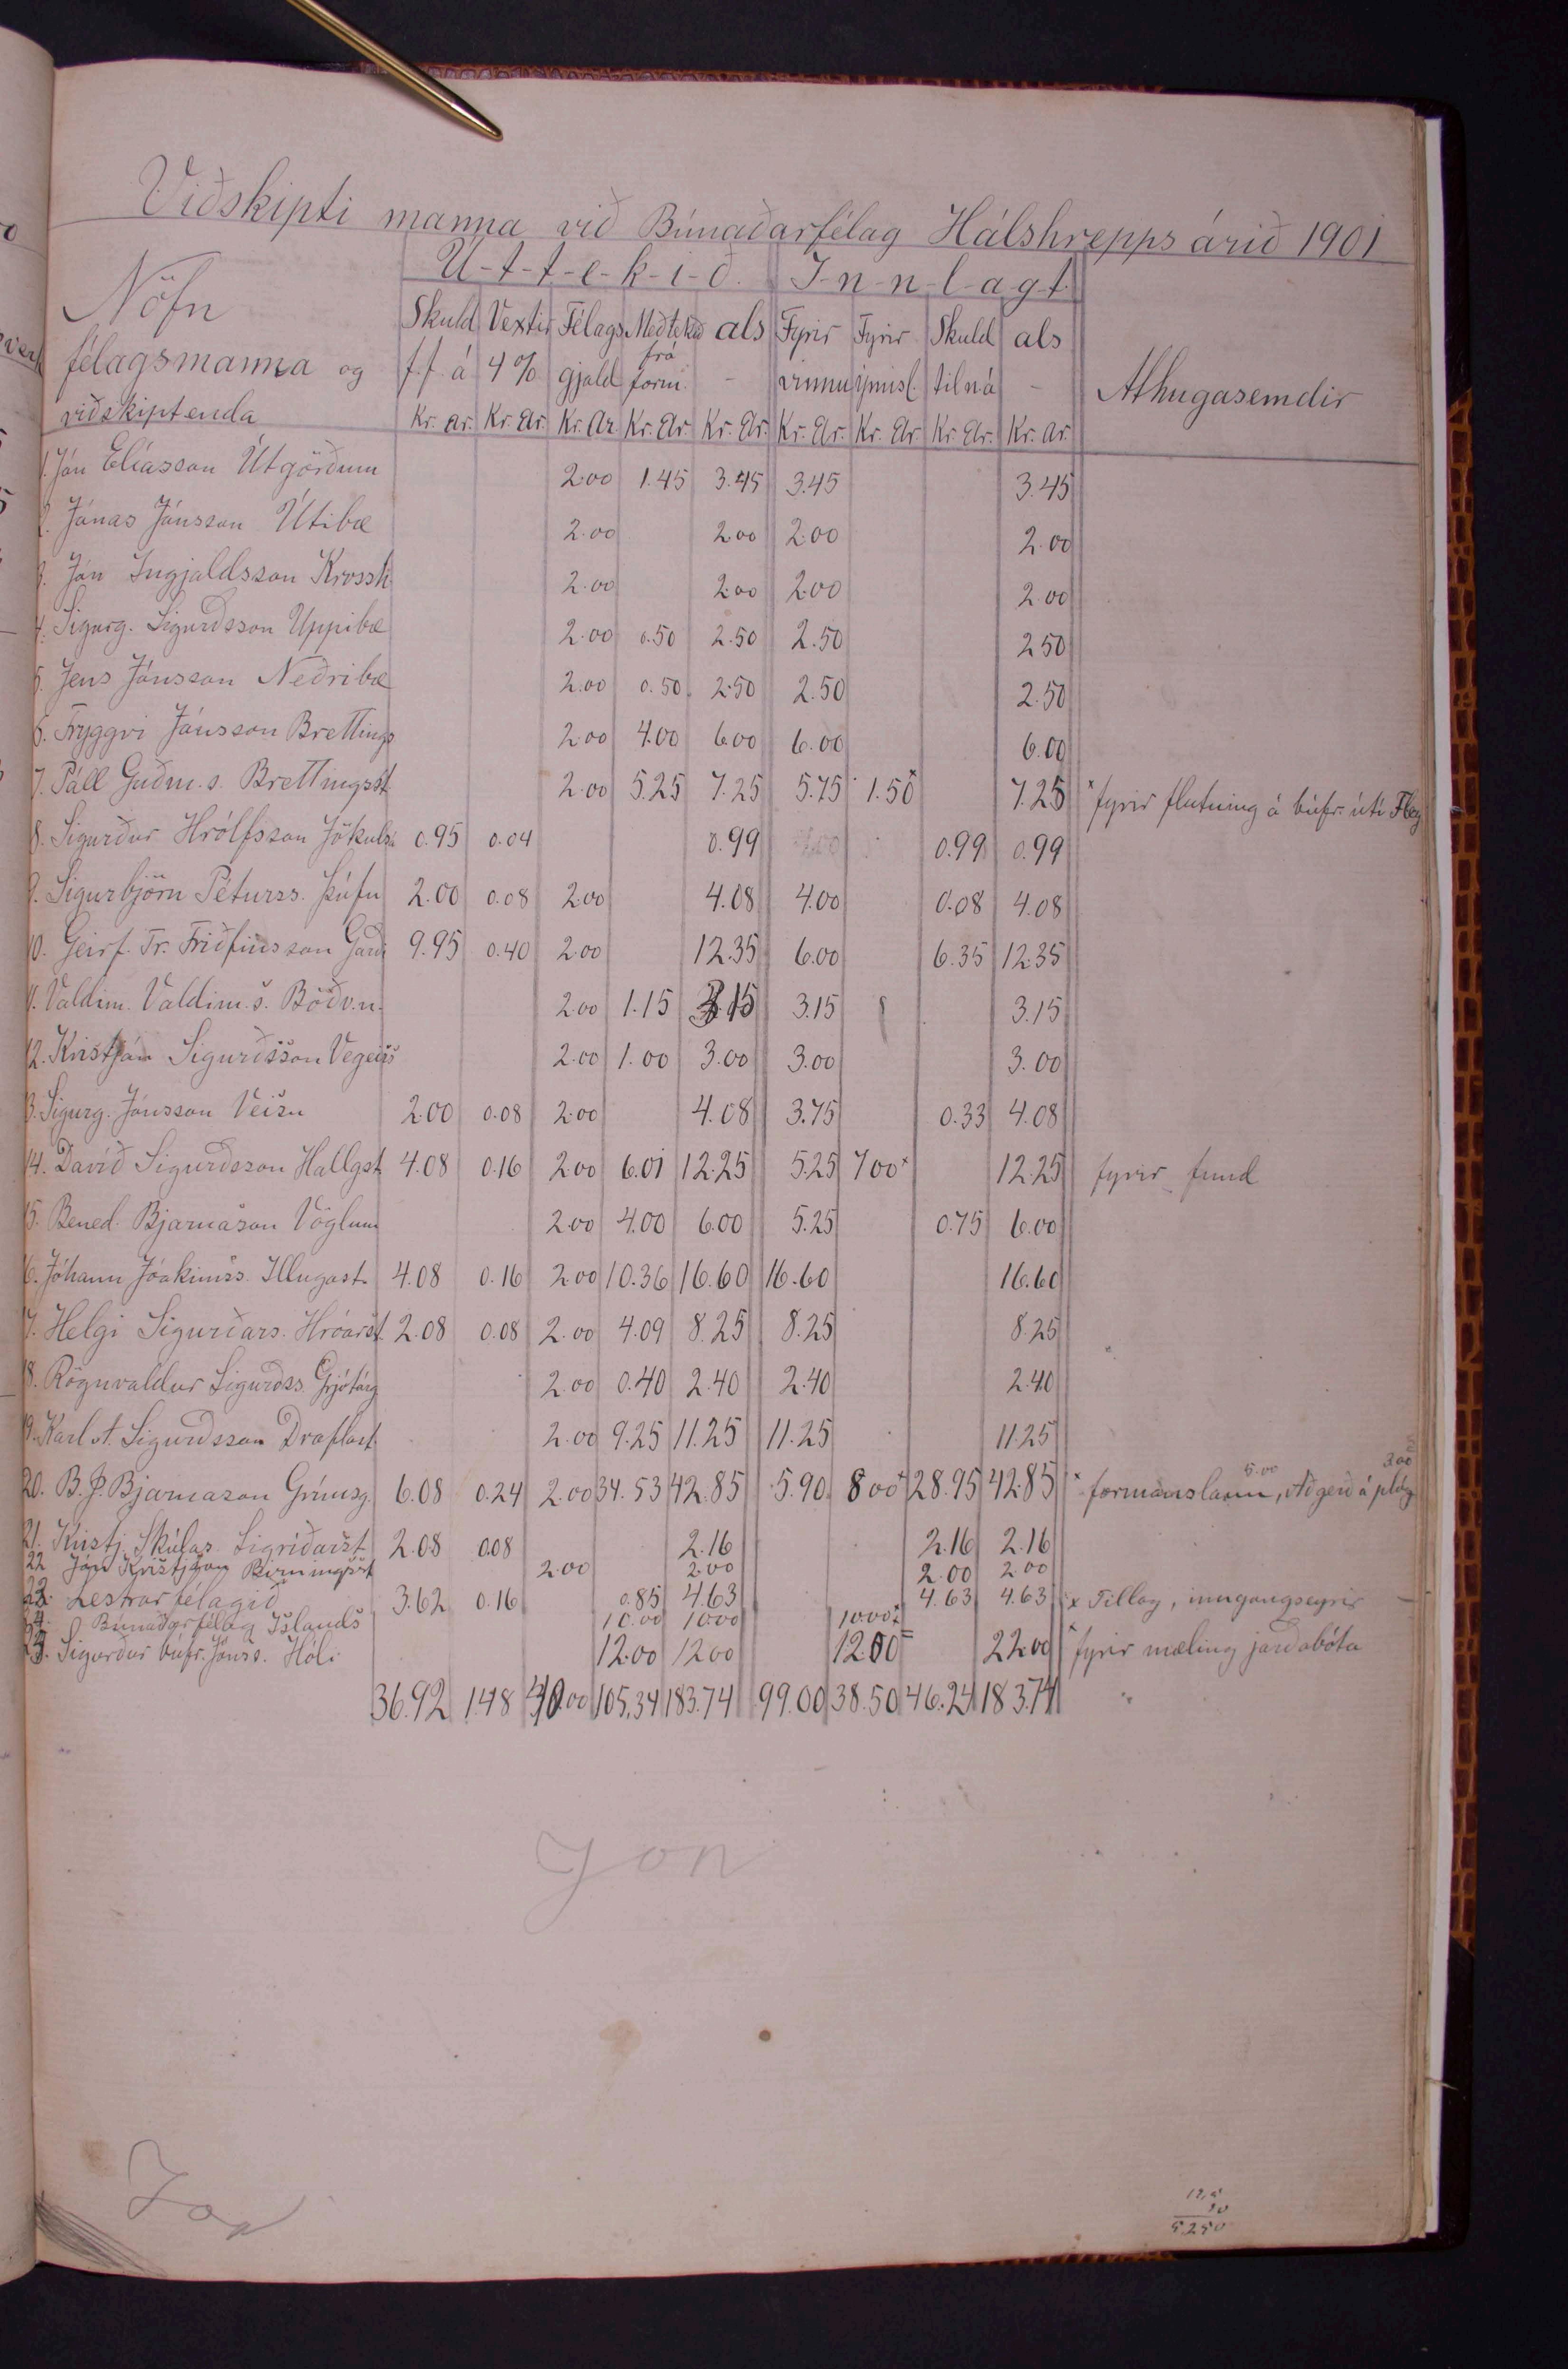 Viðskipti manna við Búnaðarfélag Hálshrepps árið 1901
Nöfn félagsmanna og viðskiptenda
Ú-t-t-e-k-i-ð. I-n-n-l-a-g-t.
Skuld f.f. á Vextir 4% Félags gjald Meðtekið frá form. als - Fyrir vinnu Fyrir ýmisl. Skuld til ná als - Athugasemdir
Kr. ar. Kr. ar. Kr. ar. Kr. ar. Kr. ar. Kr. ar. Kr. ar. Kr. ar. Kr. ar.
1. Jón Elíasson Útgörðum 2.00 1.45 3.45 3.45 3.45
2. Jónas Jónsson Útibæ 2.00 2.00 2.00 2.00
3. Jón Ingjaldsson Krossh. 2.00 2.00 2.00 2.00
4. Sigurg. Sigurðsson Uppibæ 2.00 0.50 2.50 2.50 2.50
5. Jens Jónsson Neðribæ 2.00 0.50 2.50 2.50 2.50
6. Tryggvi Jónsson Brettings 2.00 4.00 6.00 6.00 6.00
7. Páll Guðm.s. Brettingsst. 2.00 5.25 7.25 5.75 1.50x 7.25 x fyrir flutning á búfr. úti Fley
8. Sigurður Hrólfsson Jökuls. 0.95 0.04 0.99 0.99 0.99
9. Sigurbjörn Péturss. Þúfu 2.00 0.08 2.00 4.08 4.00 0.08 4.08
10. Geirf. Tr. Friðfinsson Garði 9.95 0.40 2.00 12.35 6.00 6.35 12.35
11. Valdim. Valdim.s. Böðv.n. 2.00 1.15 3.15 3.15 3.15
12. Kristján Sigurðsson Vegeirs 2.00 1.00 3.00 3.00 3.00
13. Sigurg. Jónsson Veisu 2.00 0.08 2.00 4.08 3.75 0.33 4.08
14. Davíð Sigurðsson Hallgst. 4.08 0.16 2.00 6.01 12.25 5.25 7.00x 12.25 fyrir fund
15. Bened. Bjarnason Vöglum 2.00 4.00 6.00 5.25 0.75 6.00
16. Jóhann Jóakimss. Illugast. 4.08 0.16 2.00 10.36 16.60 16.60 16.60
17. Helgi Sigurðars. Hróarst. 2.08 0.08 2.00 4.09 8.25 8.25 8.25
18. Rögnvaldur Sigurðss. Grjótárg 2.00 0.40 2.40 2.40 2.40
19. Karl A. Sigurðsson Draflast. 2.00 9.25 11.25 11.25 11.25
20. B. J. Bjarnason Grímsg. 6.08 0.24 2.00 34.53 42.85 5.90 8.00x 28.95 42.85 x formanslaun 5.00, Aðgerð á plóg 3.00
21. Kristj. Skúlas. Sigríðarst. 2.08 0.08 2.16 2.16 2.16
22 Jón Kristjánson Birningsst 2.00 2.00 2.00 2.00
23. Lestrarfélagið 3.62 0.16 0.85 4.63 4.63 4.63
24. Búnaðarfélag Íslands 10.00 10.00 10.00x x Tillag, inngangseyrir
25. Sigurður búfr. Jónss. Hóli 12.00 12.00 12.00 = 22.00 x fyrir mæling jarðabóta
36.92 1.48 40.00 105.34 183.74 99.00 38.50 46.24 183.74
Jon
5250